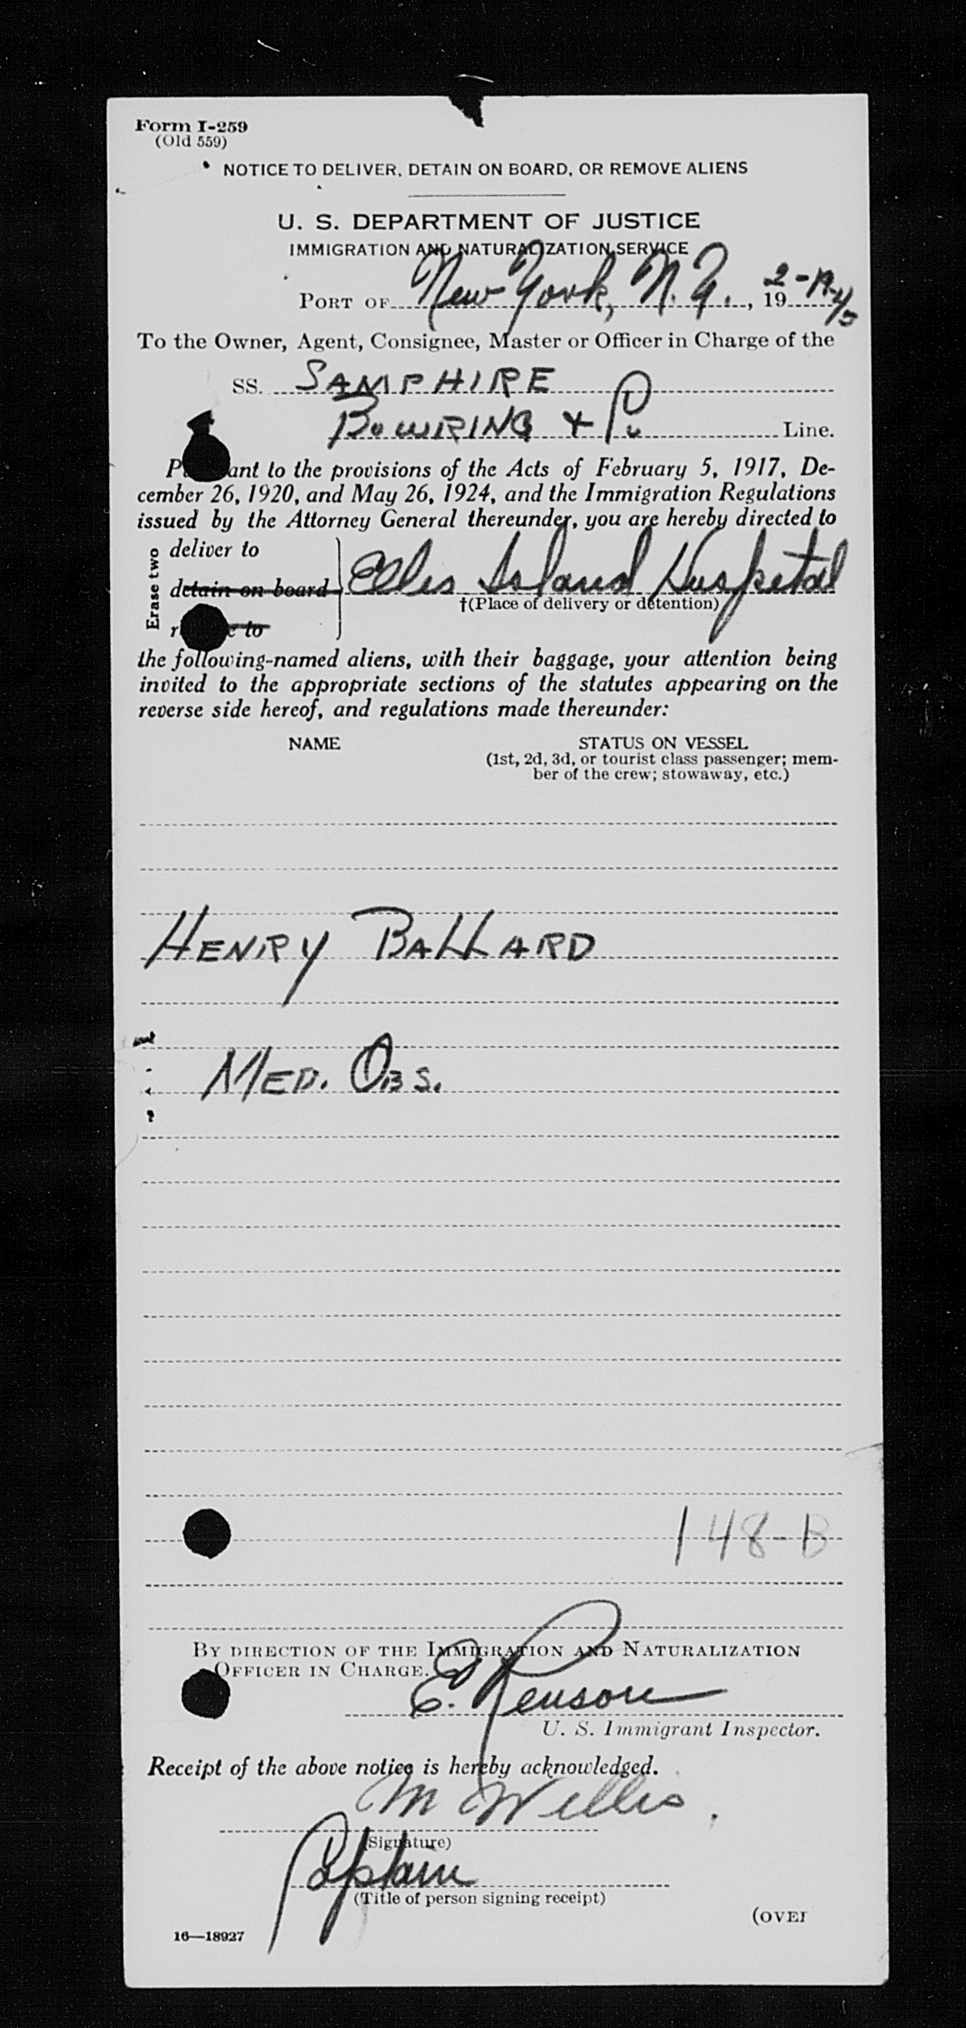 Form I-259
(Old 559)
NOTICE TO DELIVER, DETAIN ON BOARD, OR REMOVE ALIENS
U. S. DEPARTMENT OF JUSTICE
IMMIGRATION AND NATURALIZATION SERVICE
PORT OF New York, N. Y., 19
To the Owner, Agent, Consignee, Master or Officer in Charge of the
SS. SAMPHIRE
BOWRING & Co Line.
Pursuant to the provisions of the Acts of February 5, 1917, De-
cember 26, 1920, and May 26, 1924, and the Immigration Regulations
issued by the Attorney General thereunder, you are hereby directed to
Erase two
deliver to
detain on board
Ellis Island Hospital
to
†(Place of delivery or detention)
the following-named aliens, with their baggage, your attention being
invited to the appropriate sections of the statutes appearing on the
reverse side hereof, and regulations made thereunder:
NAME STATUS ON VESSEL
(1st, 2d, 3d, or tourist class passenger; mem-
ber of the crew; stowaway, etc.)
HENRY BALLARD
MED. OBS.
148-B
BY DIRECTION OF THE IMMIGRATION AND NATURALIZATION
OFFICER IN CHARGE.
E. Renson
U. S. Immigrant Inspector.
Receipt of the above notice is hereby acknowledged.
M Willis.
(Signature)
Captain
(Title of person signing receipt)
(OVER
16—18927